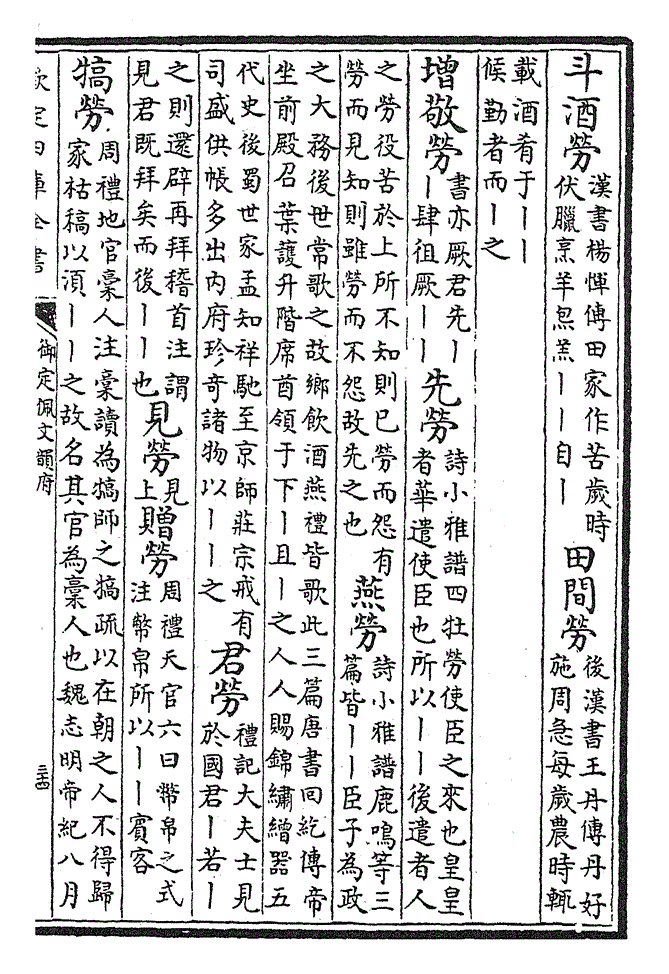 斗酒勞
漢書楊惲傳田家作苦歲時
伏臘烹羊炰羔丨丨自丨
田間勞
後漢書王丹傳丹好
施周急每歲農時輒
載酒肴于丨丨
候勤者而丨之
增敬勞
書亦厥君先丨
丨肆徂厥丨丨
先勞
詩小雅譜四牡勞使臣之來也皇皇
者華遣使臣也所以丨丨後遣者人
之勞役苦於上所不知則已勞而怨有
勞而見知則雖勞而不怨故先之也
燕勞
詩小雅譜鹿鳴等三
篇皆丨丨臣子為政
之大務後世常歌之故鄉飲酒燕禮皆歌此三篇唐書回紇傳帝
坐前殿召葉護升階席酋領于下丨且丨之人人賜錦繡繒器五
代史後蜀世家孟知祥馳至京師莊宗戒有
司盛供帳多出内府珍奇諸物以丨丨之
君勞
禮記大夫士見
於國君丨若丨
之則還辟再拜稽首注謂
見君既拜矣而後丨丨也
見勞
見
上
贈勞
周禮天官六曰幣帛之式
注幣帛所以丨丨賓客
犒勞
周禮地官槀人注槀讀為犒師之犒疏以在朝之人不得歸
家枯槁以湏丨丨之故名其官為槀人也魏志明帝紀八月
欽定四庫全書
御定佩文韻府